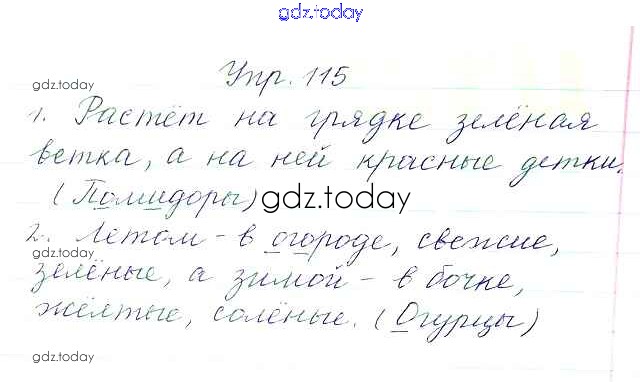 gdz.today
Упр. 115
gdz.today
1. Растёт на грядке зелёная
ветка, а на ней красные детки.
(Помидоры)
gdz.today
2. Летом - в огороде, свежие,
gdz.today
зелёные, а зимой - в бочке,
жёлтые, солёные. (Огурцы)
gdz.today